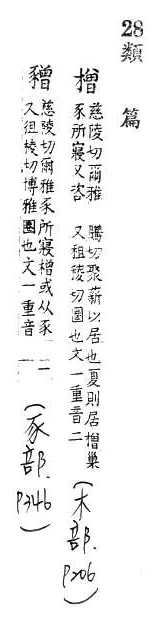 28類篇
橧 慈陵切爾雅豕所寢又咨騰切聚薪以居也夏則居橧巢又徂稜切圈也文一重音二 (木部. P206)
䝙 慈陵切爾雅豕所寢橧或从豕又徂稜切博雅圈也文一重音一 (豕部. P346)